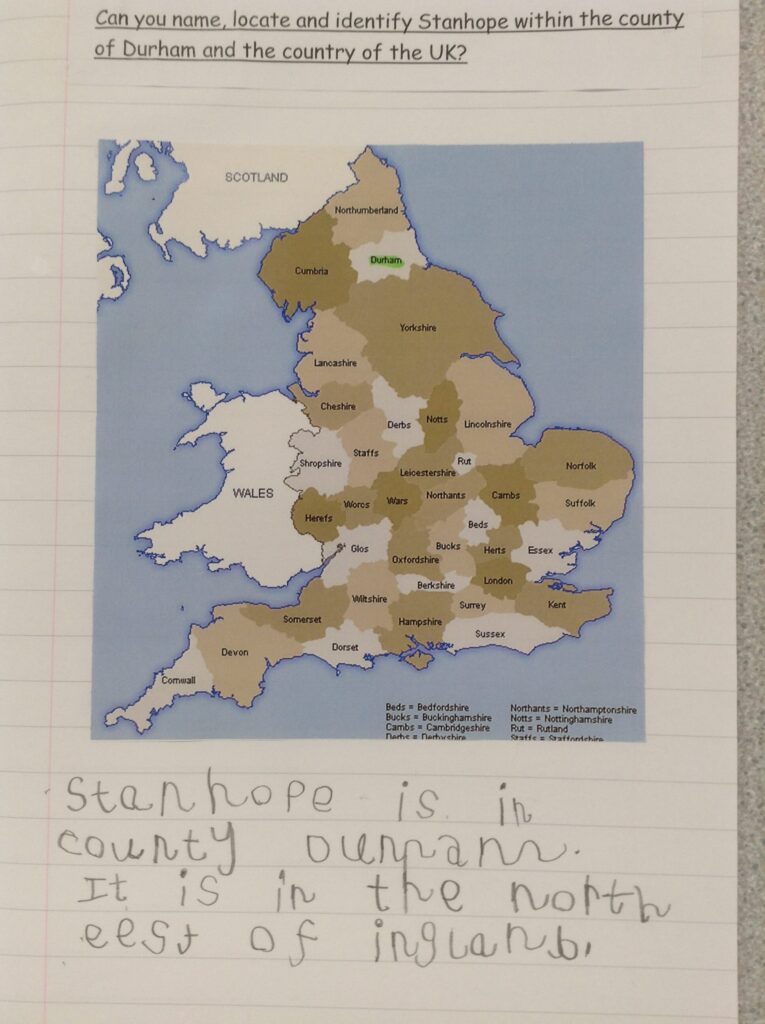 Can you name, locate and identify Stanhope within the county
of Durham and the country of the UK?
SCOTLAND
Northumberland
Durham
Cumbria
Yorkshire
Lancashire
Cheshire
Derbs
Notts
Lincolnshire
Staffs
Shropshire
Rut
Norfolk
Leicestershire
WALES
Worcs
Wars
Northants
Cambs
Suffolk
Herefs
Beds
Glos
Bucks
Herts
Essex
Oxfordshire
London
Berkshire
Wiltshire
Surrey
Kent
Somerset
Hampshire
Sussex
Dorset
Devon
Cornwall
Beds = Bedfordshire
Bucks = Buckinghamshire
Cambs = Cambridgeshire
Derbs = Derbyshire
Northants = Northamptonshire
Notts = Nottinghamshire
Rut = Rutland
Staffs = Staffordshire
Stanhope is in
county
It is in the north
eest of inglanb.